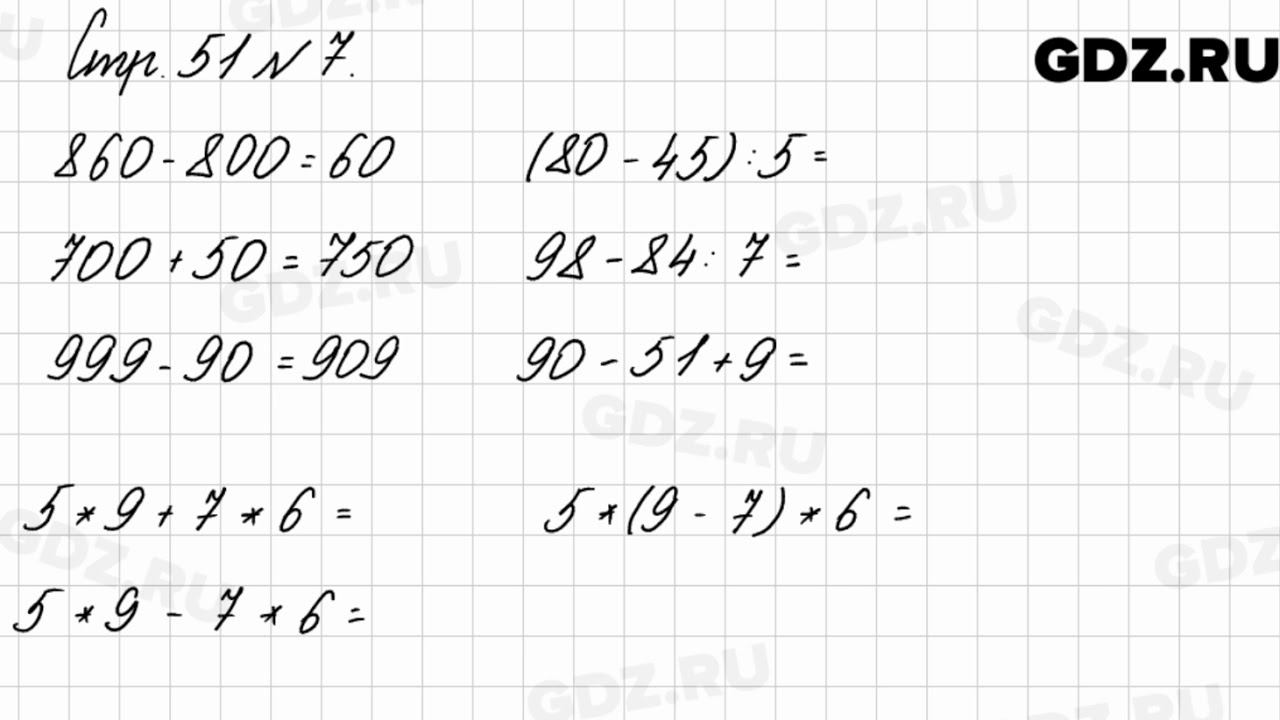 Стр. 51 № 7.
GDZ.RU
860 - 800 = 60
(80 - 45) : 5 =
700 + 50 = 750
98 - 84 : 7 =
999 - 90 = 909
90 - 51 + 9 =
5 * 9 + 7 * 6 =
5 * (9 - 7) * 6 =
5 * 9 - 7 * 6 =